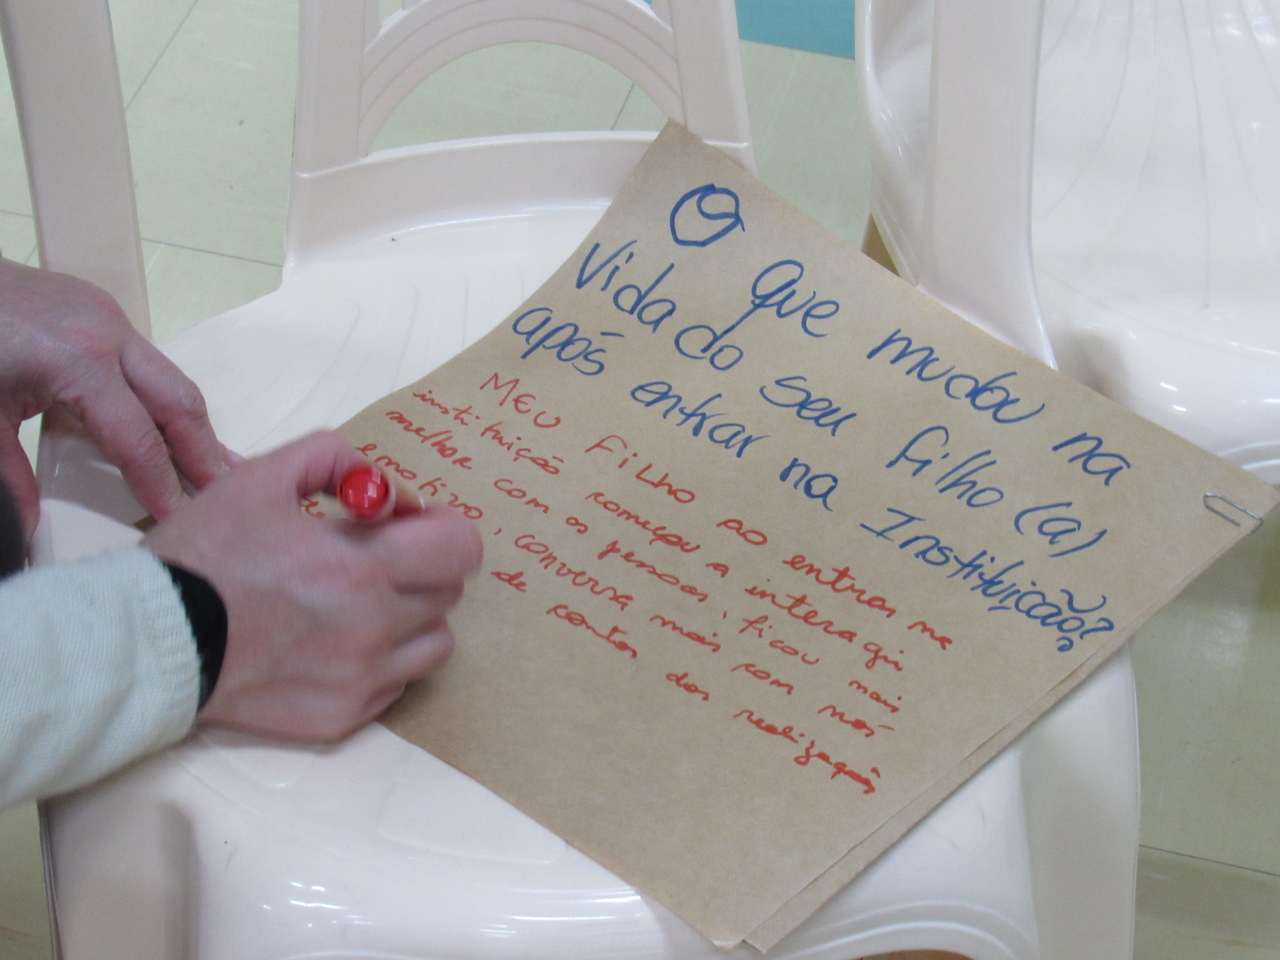 O que mudou na
vida do seu filho (a)
após entrar na Instituição?
MEU FILHO ao entrar na
instituição começou a interagi
melhor com as pessoas, ficou mais
emotivo, conversa mais com nós
de contos das realizações